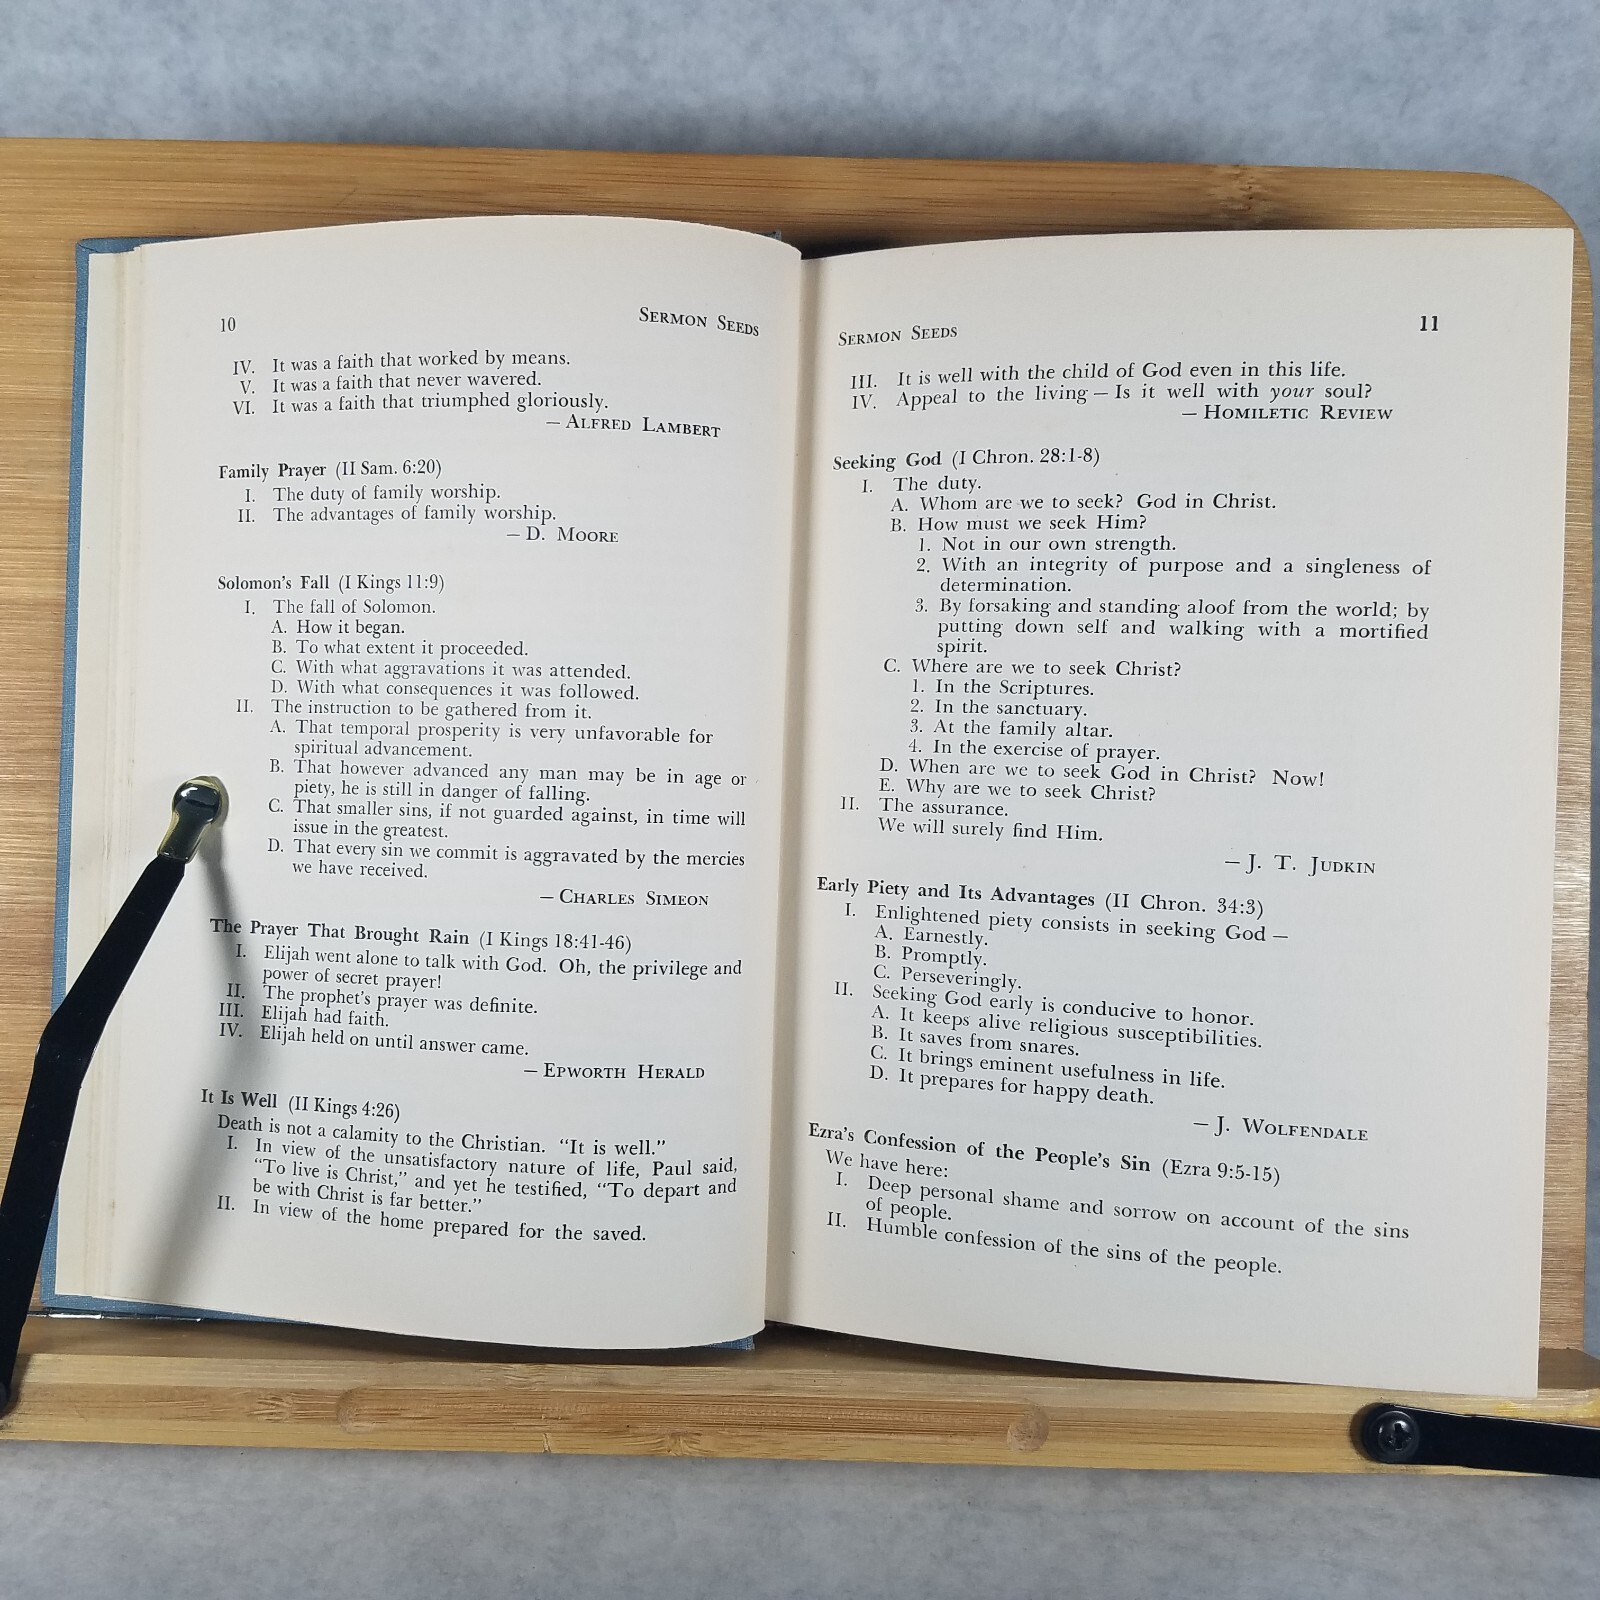 10 SERMON SEEDS
IV. It was a faith that worked by means.
V. It was a faith that never wavered.
VI. It was a faith that triumphed gloriously.
— ALFRED LAMBERT
Family Prayer (II Sam. 6:20)
I. The duty of family worship.
II. The advantages of family worship.
— D. MOORE
Solomon's Fall (I Kings 11:9)
I. The fall of Solomon.
A. How it began.
B. To what extent it proceeded.
C. With what aggravations it was attended.
D. With what consequences it was followed.
II. The instruction to be gathered from it.
A. That temporal prosperity is very unfavorable for
spiritual advancement.
B. That however advanced any man may be in age or
piety, he is still in danger of falling.
C. That smaller sins, if not guarded against, in time will
issue in the greatest.
D. That every sin we commit is aggravated by the mercies
we have received.
— CHARLES SIMEON
The Prayer That Brought Rain (I Kings 18:41-46)
I. Elijah went alone to talk with God. Oh, the privilege and
power of secret prayer!
II. The prophet's prayer was definite.
III. Elijah had faith.
IV. Elijah held on until answer came.
— EPWORTH HERALD
It Is Well (II Kings 4:26)
Death is not a calamity to the Christian. "It is well."
I. In view of the unsatisfactory nature of life, Paul said,
"To live is Christ," and yet he testified, "To depart and
be with Christ is far better."
II. In view of the home prepared for the saved.
SERMON SEEDS 11
III. It is well with the child of God even in this life.
IV. Appeal to the living — Is it well with your soul?
— HOMILETIC REVIEW
Seeking God (I Chron. 28:1-8)
I. The duty.
A. Whom are we to seek? God in Christ.
B. How must we seek Him?
1. Not in our own strength.
2. With an integrity of purpose and a singleness of
determination.
3. By forsaking and standing aloof from the world; by
putting down self and walking with a mortified
spirit.
C. Where are we to seek Christ?
1. In the Scriptures.
2. In the sanctuary.
3. At the family altar.
4. In the exercise of prayer.
D. When are we to seek God in Christ? Now!
E. Why are we to seek Christ?
II. The assurance.
We will surely find Him.
— J. T. JUDKIN
Early Piety and Its Advantages (II Chron. 34:3)
I. Enlightened piety consists in seeking God —
A. Earnestly.
B. Promptly.
C. Perseveringly.
II. Seeking God early is conducive to honor.
A. It keeps alive religious susceptibilities.
B. It saves from snares.
C. It brings eminent usefulness in life.
D. It prepares for happy death.
— J. WOLFENDALE
Ezra's Confession of the People's Sin (Ezra 9:5-15)
We have here:
I. Deep personal shame and sorrow on account of the sins
of people.
II. Humble confession of the sins of the people.